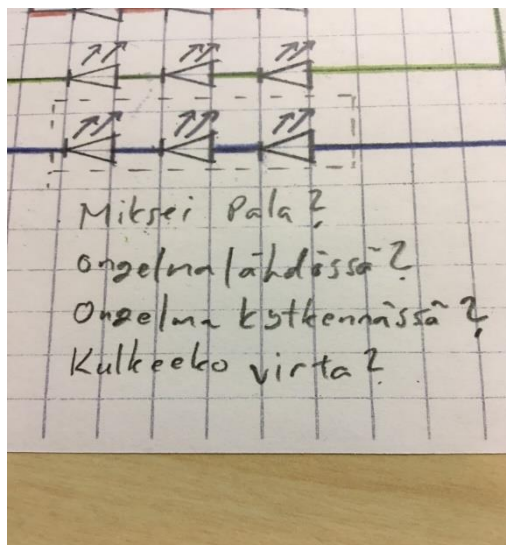 Miksei Pala?
Ongelma lähdössä?
Ongelma kytkennässä?
Kulkeeko virta?